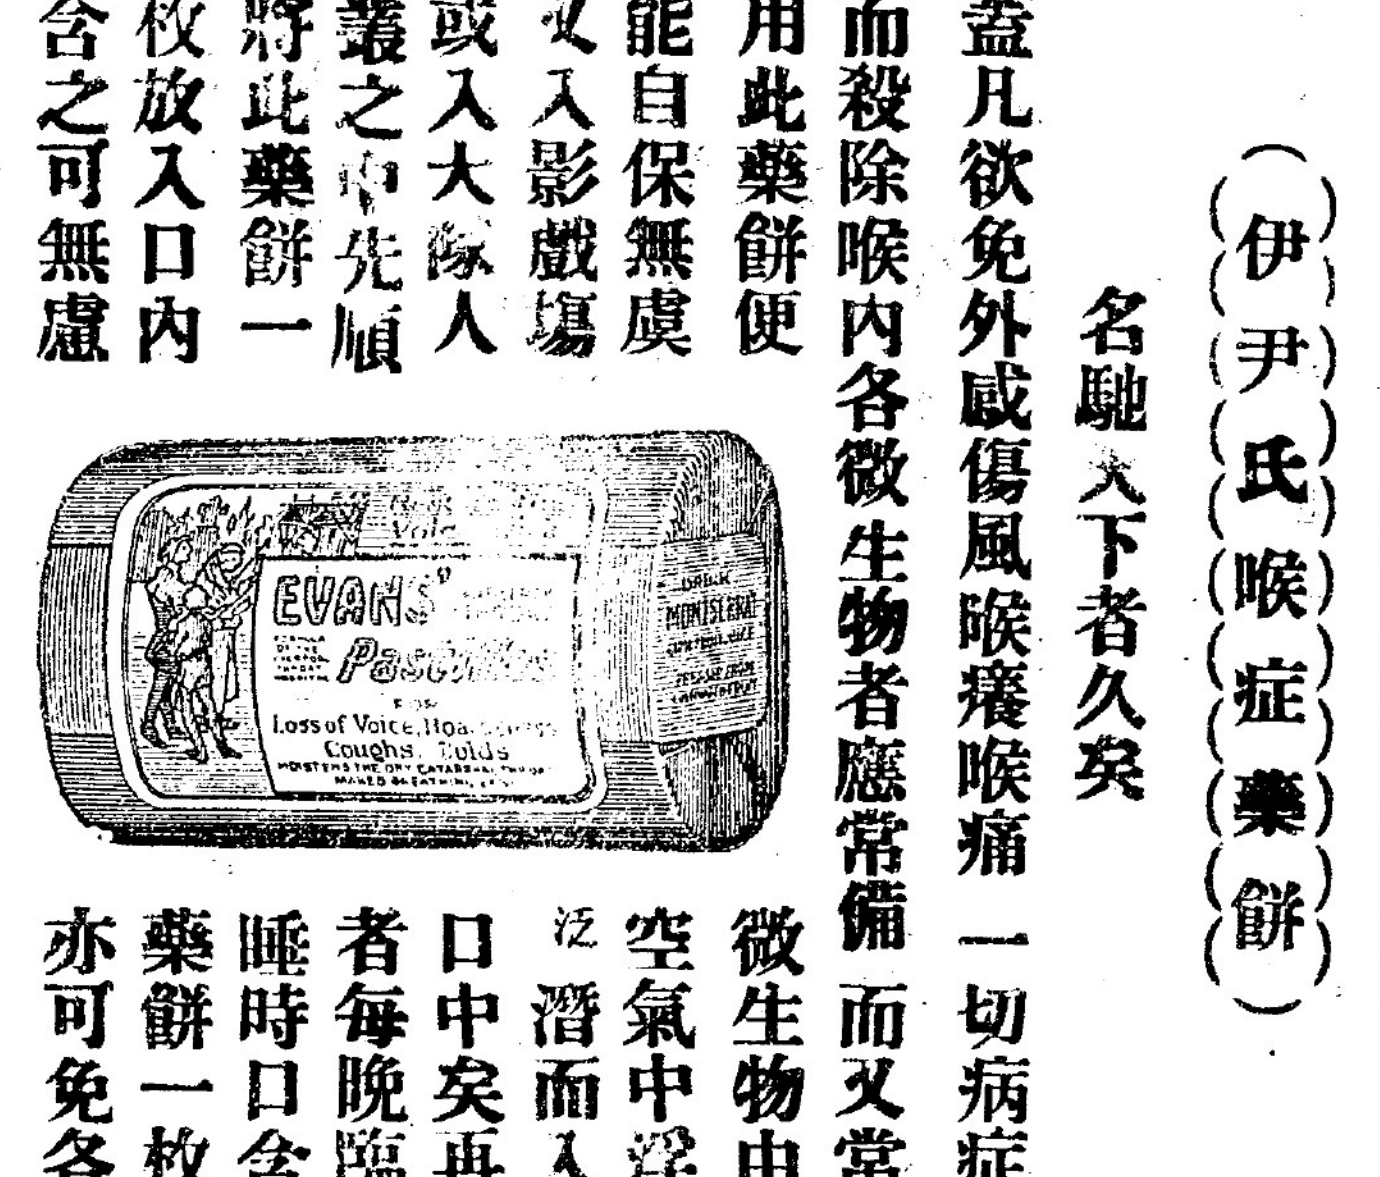 伊尹氏喉症藥餅
名馳天下者久矣
蓋凡欲免外感傷風喉癢喉痛一切病症
而殺除喉內各微生物者應常備而又常
用此藥餅便
能自保無虞
又入影戲場
或入大隊人
叢之中先順
將此藥餅一
枚放入口內
含之可無慮
EVANS'
Pastilles
FOR
Loss of Voice, Hoarseness
Coughs, Colds
MOISTENS THE DRY CATARRHAL
MAKES BREATHING
MONTSERRAT
微生物由
空氣中浮
泛潛而入
口中矣再
者每晚臨
睡時口含
藥餅一枚
亦可免各